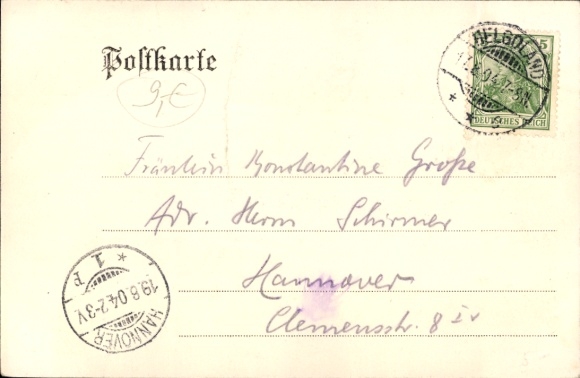 Postkarte
HELGOLAND
5
DEUTSCHES REICH
9,€
Fräulein Konstantine Große
Adr. Herrn Schirmer
Hannover
Clemensstr. 8 IV
HANNOVER
19.8.04.2-3V.
* 1 P
5-